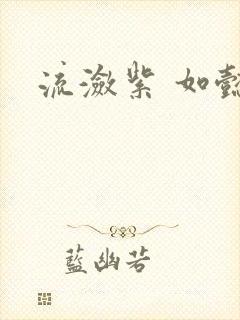 流瀲紫 如懿
藍幽若